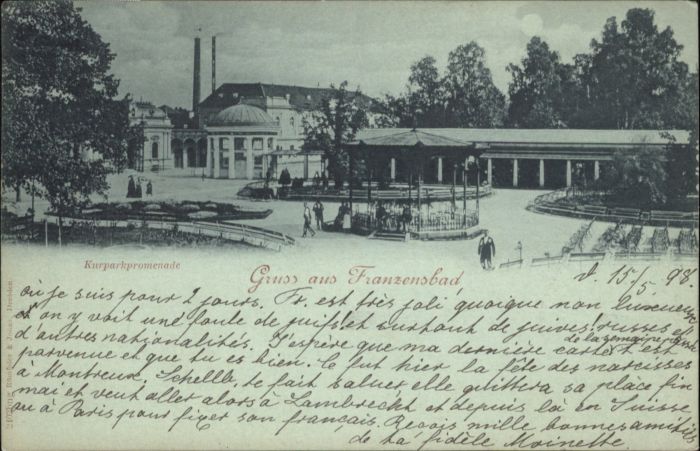 Kurparkpromenade
Gruss aus Franzensbad
d. 15/5. 98.
où je suis pour 2 jours. Fr. est très joli quoique non luxueux
et on y voit une foule de juifs et surtout de juives russes et
d'autres nationalités. J'espère que ma dernière carte est
de la semaine
parvenue et que tu es bien. Ce fut hier la fête des narcisses
à Montreux. Schella te fait saluer elle quittera sa place fin
mai et veut aller alors à Lambrecht et depuis là en Suisse
ou à Paris pour fixer son français. Reçois mille bonnes amitiés
de ta fidèle Moinette.